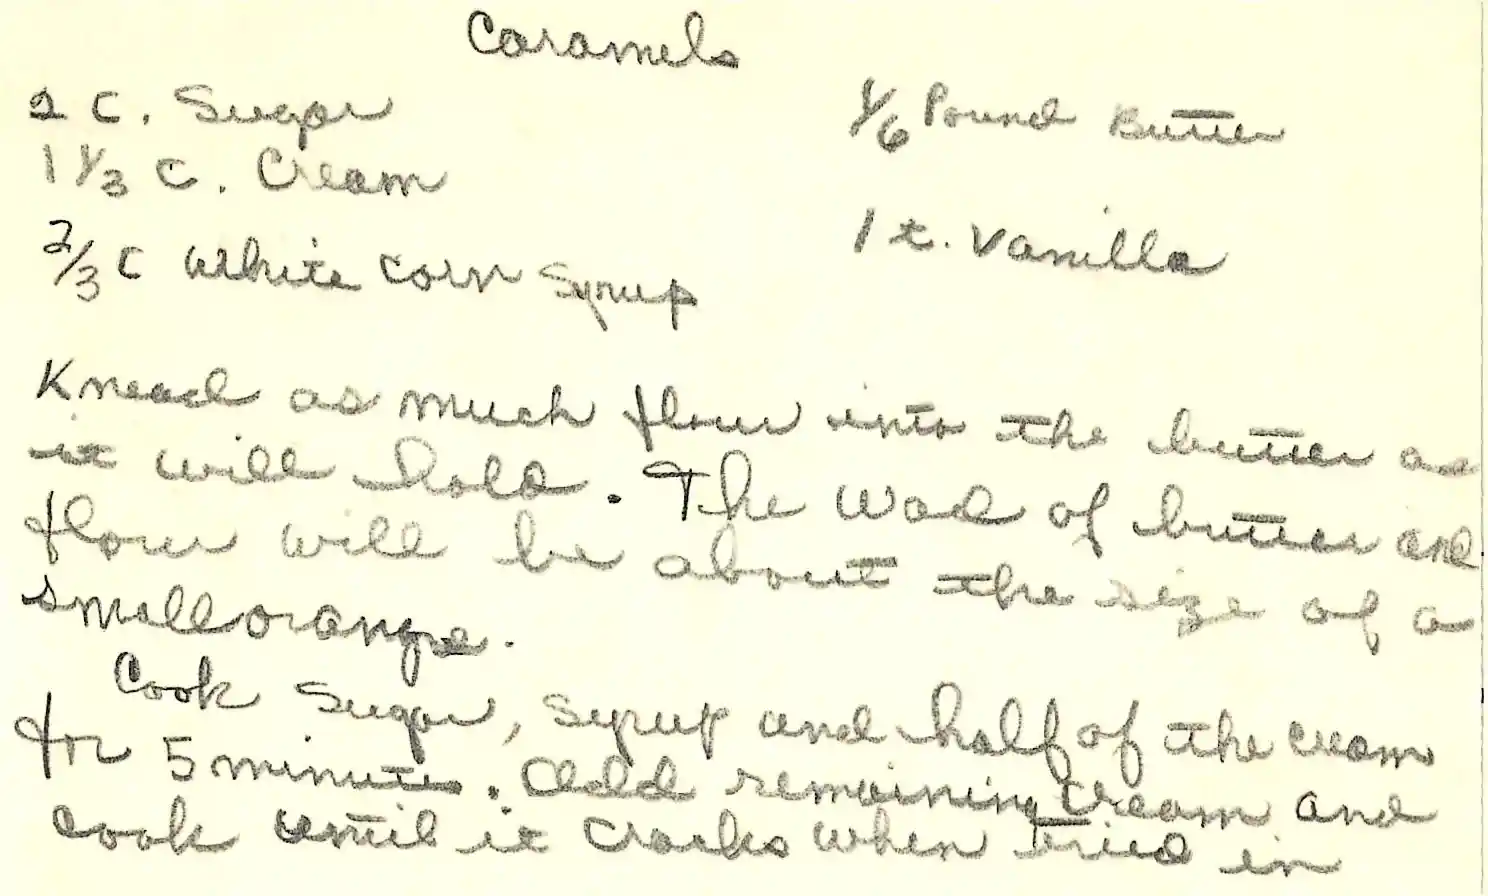 Caramels
2 C. Sugar
1 1/3 C. Cream
2/3 C White corn Syrup
1/6 Pound Butter
1 t. Vanilla
Knead as much flour into the butter as
it will hold. The wad of butter and
flour will be about the size of a
small orange.
Cook Sugar, Syrup and half of the cream
for 5 minutes. Add remaining cream and
cook until it cracks when tried in